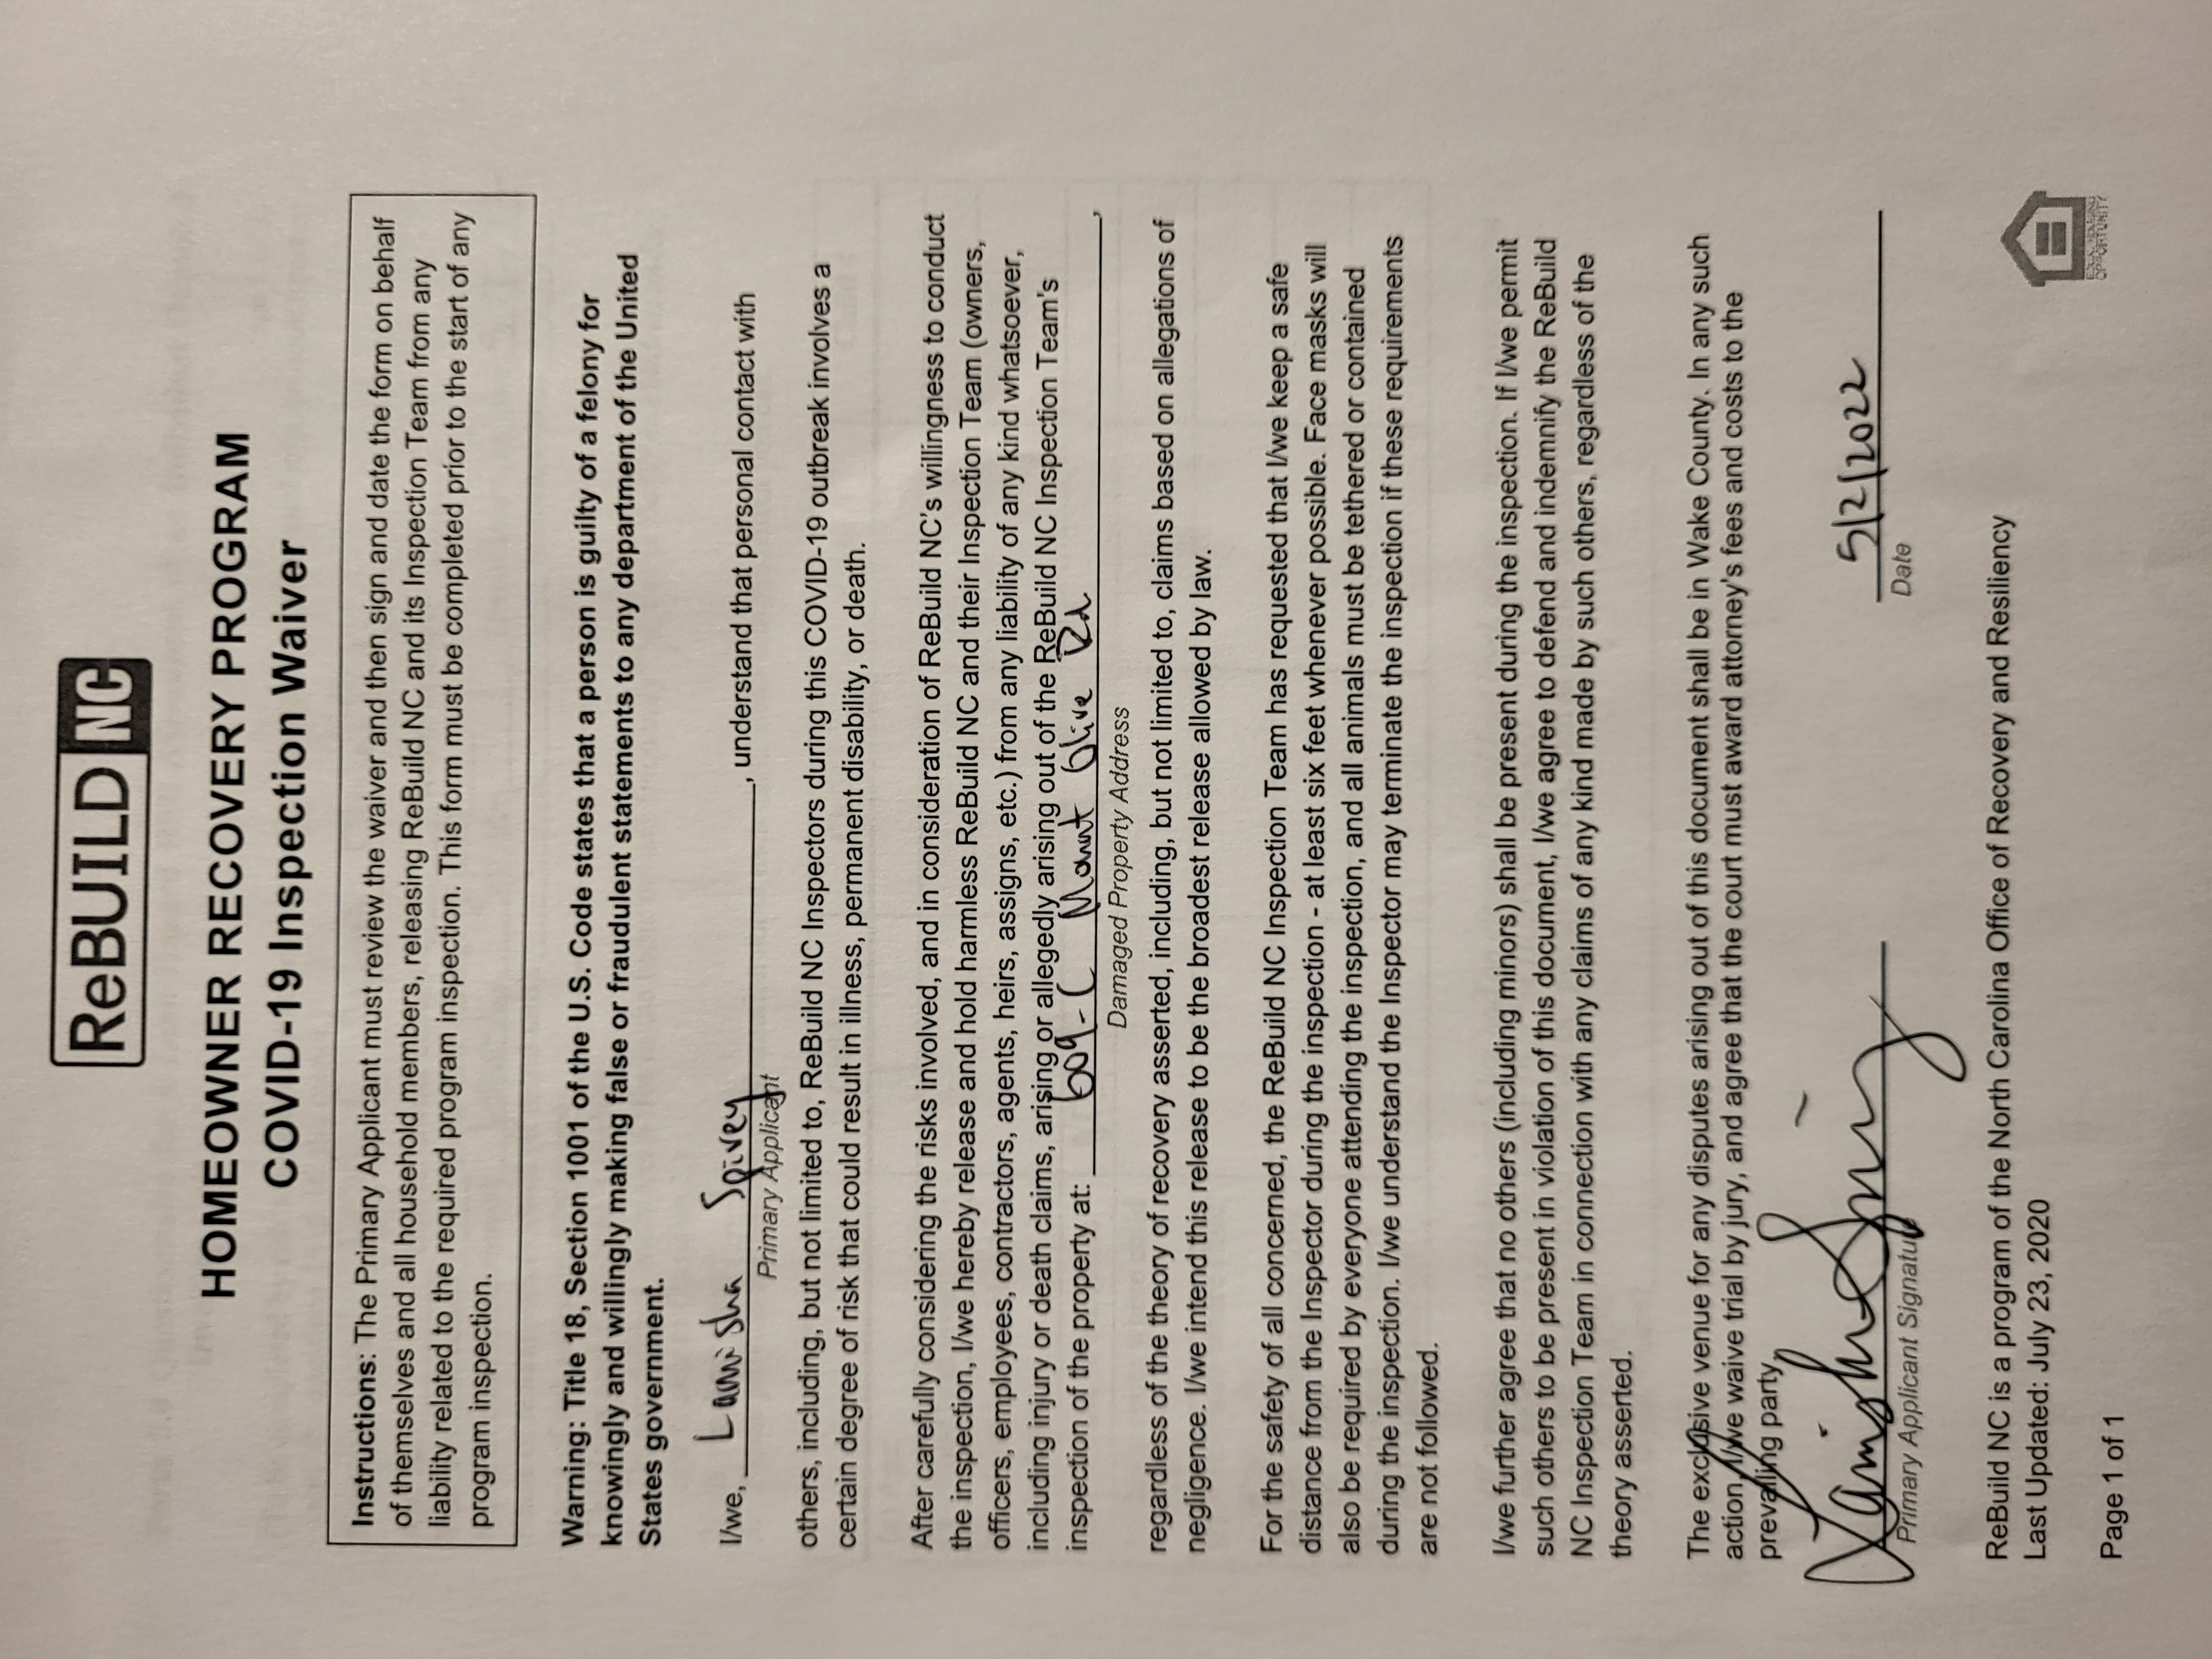 ReBUILD NC
HOMEOWNER RECOVERY PROGRAM
COVID-19 Inspection Waiver
Instructions: The Primary Applicant must review the waiver and then sign and date the form on behalf
of themselves and all household members, releasing ReBuild NC and its Inspection Team from any
liability related to the required program inspection. This form must be completed prior to the start of any
program inspection.
Warning: Title 18, Section 1001 of the U.S. Code states that a person is guilty of a felony for
knowingly and willingly making false or fraudulent statements to any department of the United
States government.
I/we, Lamisha Spivey, understand that personal contact with
Primary Applicant
others, including, but not limited to, ReBuild NC Inspectors during this COVID-19 outbreak involves a
certain degree of risk that could result in illness, permanent disability, or death.
After carefully considering the risks involved, and in consideration of ReBuild NC's willingness to conduct
the inspection, I/we hereby release and hold harmless ReBuild NC and their Inspection Team (owners,
officers, employees, contractors, agents, heirs, assigns, etc.) from any liability of any kind whatsoever,
including injury or death claims, arising or allegedly arising out of the ReBuild NC Inspection Team's
inspection of the property at: 609-C Mount Olive Rd,
Damaged Property Address
regardless of the theory of recovery asserted, including, but not limited to, claims based on allegations of
negligence. I/we intend this release to be the broadest release allowed by law.
For the safety of all concerned, the ReBuild NC Inspection Team has requested that I/we keep a safe
distance from the Inspector during the inspection - at least six feet whenever possible. Face masks will
also be required by everyone attending the inspection, and all animals must be tethered or contained
during the inspection. I/we understand the Inspector may terminate the inspection if these requirements
are not followed.
I/we further agree that no others (including minors) shall be present during the inspection. If I/we permit
such others to be present in violation of this document, I/we agree to defend and indemnify the ReBuild
NC Inspection Team in connection with any claims of any kind made by such others, regardless of the
theory asserted.
The exclusive venue for any disputes arising out of this document shall be in Wake County. In any such
action, I/we waive trial by jury, and agree that the court must award attorney's fees and costs to the
prevailing party.
Lamisha Spivey 5/2/2022
Primary Applicant Signature Date
ReBuild NC is a program of the North Carolina Office of Recovery and Resiliency
Last Updated: July 23, 2020
OPPORTUNITY
Page 1 of 1